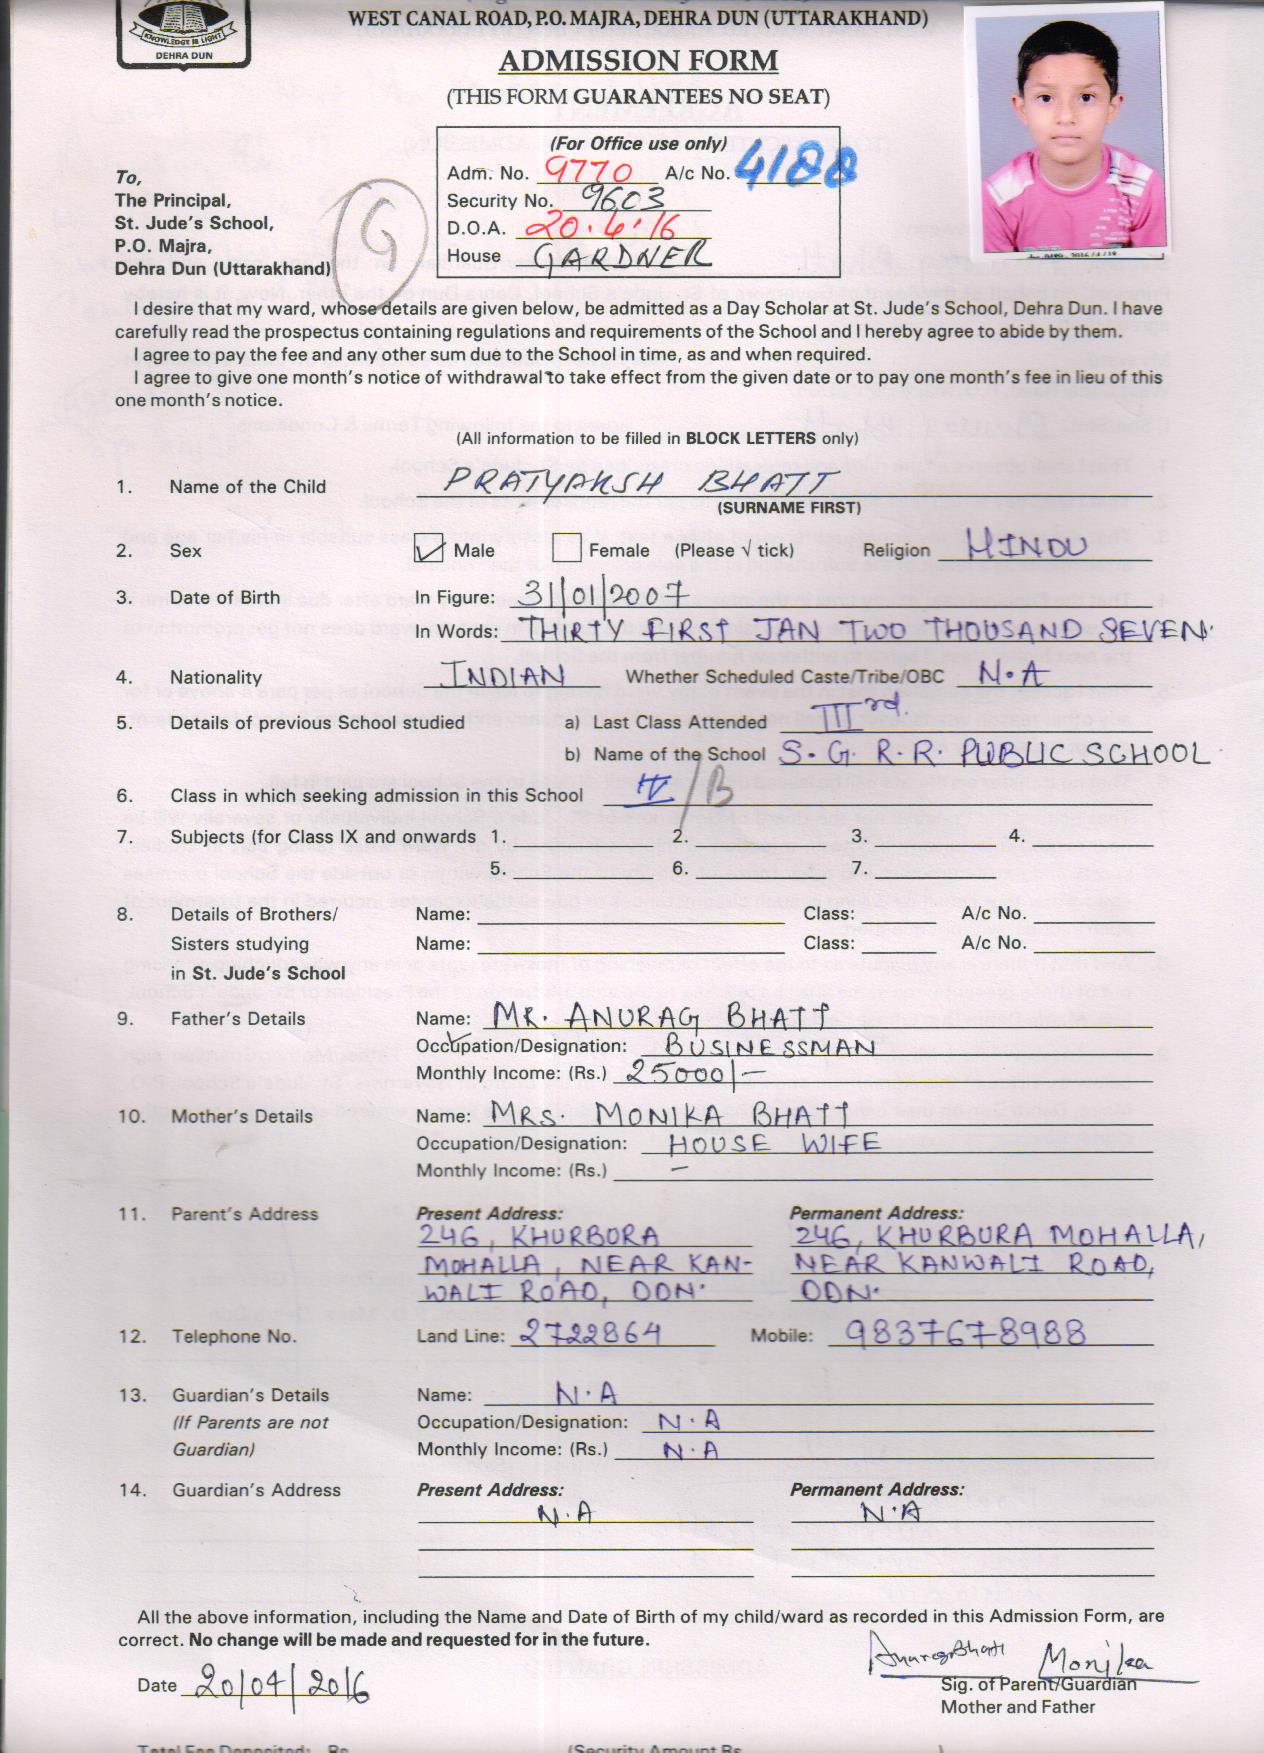 KNOWLEDGE IS LIGHT
DEHRA DUN
WEST CANAL ROAD, P.O. MAJRA, DEHRA DUN (UTTARAKHAND)
ADMISSION FORM
(THIS FORM GUARANTEES NO SEAT)
(For Office use only)
Adm. No. 9770 A/c No. 4188
Security No. 9603
D.O.A. 20.4.16
House GARDNER
To,
The Principal,
St. Jude's School,
P.O. Majra,
Dehra Dun (Uttarakhand)
G
I desire that my ward, whose details are given below, be admitted as a Day Scholar at St. Jude's School, Dehra Dun. I have
carefully read the prospectus containing regulations and requirements of the School and I hereby agree to abide by them.
I agree to pay the fee and any other sum due to the School in time, as and when required.
I agree to give one month's notice of withdrawal to take effect from the given date or to pay one month's fee in lieu of this
one month's notice.
(All information to be filled in BLOCK LETTERS only)
1. Name of the Child PRATYAKSH BHATT
(SURNAME FIRST)
2. Sex ☑ Male ☐ Female (Please √ tick) Religion HINDU
3. Date of Birth In Figure: 31/01/2007
In Words: THIRTY FIRST JAN TWO THOUSAND SEVEN.
4. Nationality INDIAN Whether Scheduled Caste/Tribe/OBC N.A
5. Details of previous School studied a) Last Class Attended IIIrd.
b) Name of the School S.G.R.R. PUBLIC SCHOOL
6. Class in which seeking admission in this School IV/B
7. Subjects (for Class IX and onwards 1. 2. 3. 4.
5. 6. 7.
8. Details of Brothers/ Name: Class: A/c No.
Sisters studying Name: Class: A/c No.
in St. Jude's School
9. Father's Details Name: MR. ANURAG BHATT
Occupation/Designation: BUSINESSMAN
Monthly Income: (Rs.) 25000/-
10. Mother's Details Name: MRS. MONIKA BHATT
Occupation/Designation: HOUSE WIFE
Monthly Income: (Rs.) -
11. Parent's Address Present Address: Permanent Address:
246, KHURBORA 246, KHURBURA MOHALLA,
MOHALLA, NEAR KAN- NEAR KANWALI ROAD,
WALI ROAD, DDN. DDN.
12. Telephone No. Land Line: 2722864 Mobile: 9837678988
13. Guardian's Details Name: N.A
(If Parents are not Occupation/Designation: N.A
Guardian) Monthly Income: (Rs.) N.A
14. Guardian's Address Present Address: Permanent Address:
N.A N.A
All the above information, including the Name and Date of Birth of my child/ward as recorded in this Admission Form, are
correct. No change will be made and requested for in the future.
Anurag Bhatt Monika
Date 20/04/2016 Sig. of Parent/Guardian
Mother and Father
Total Fee Deposited: Rs. (Security Amount Rs. )